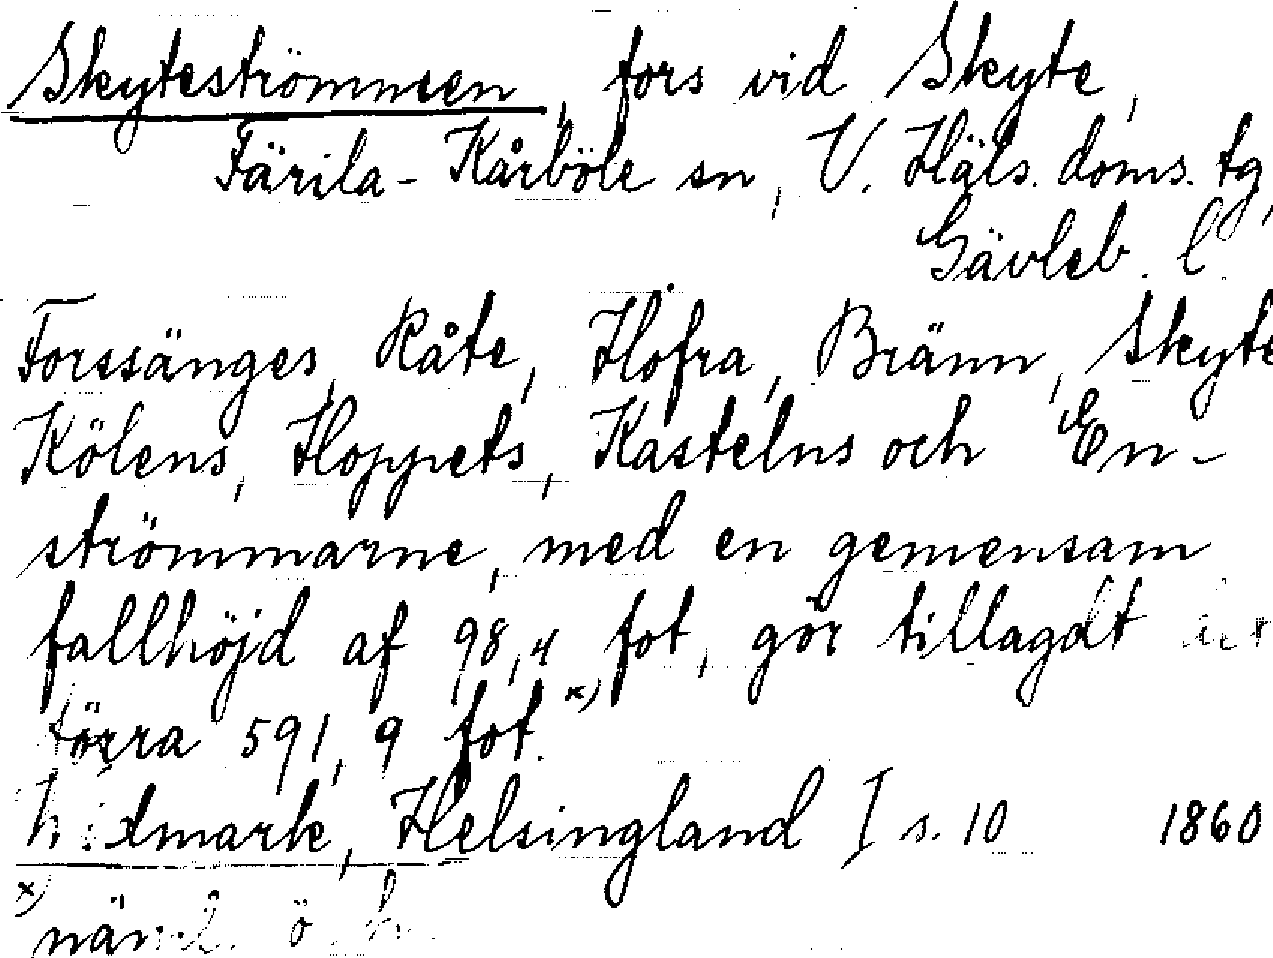 Skyteströmmen, fors vid Skyte,
Färila-Kårböle sn, V. Häls. doms. tg,
Gävleb. l.
Forssänges, Råte, Hofra, Bränn, Skyte
Kölens, Hoppets, Kastelns och En-
strömmarne, med en gemensam
fallhöjd af 98,4 fot, gör tillagdt det
förra 591,9 fot.x)
Widmark, Helsingland I s. 10 1860
x)
näml. ö. h.